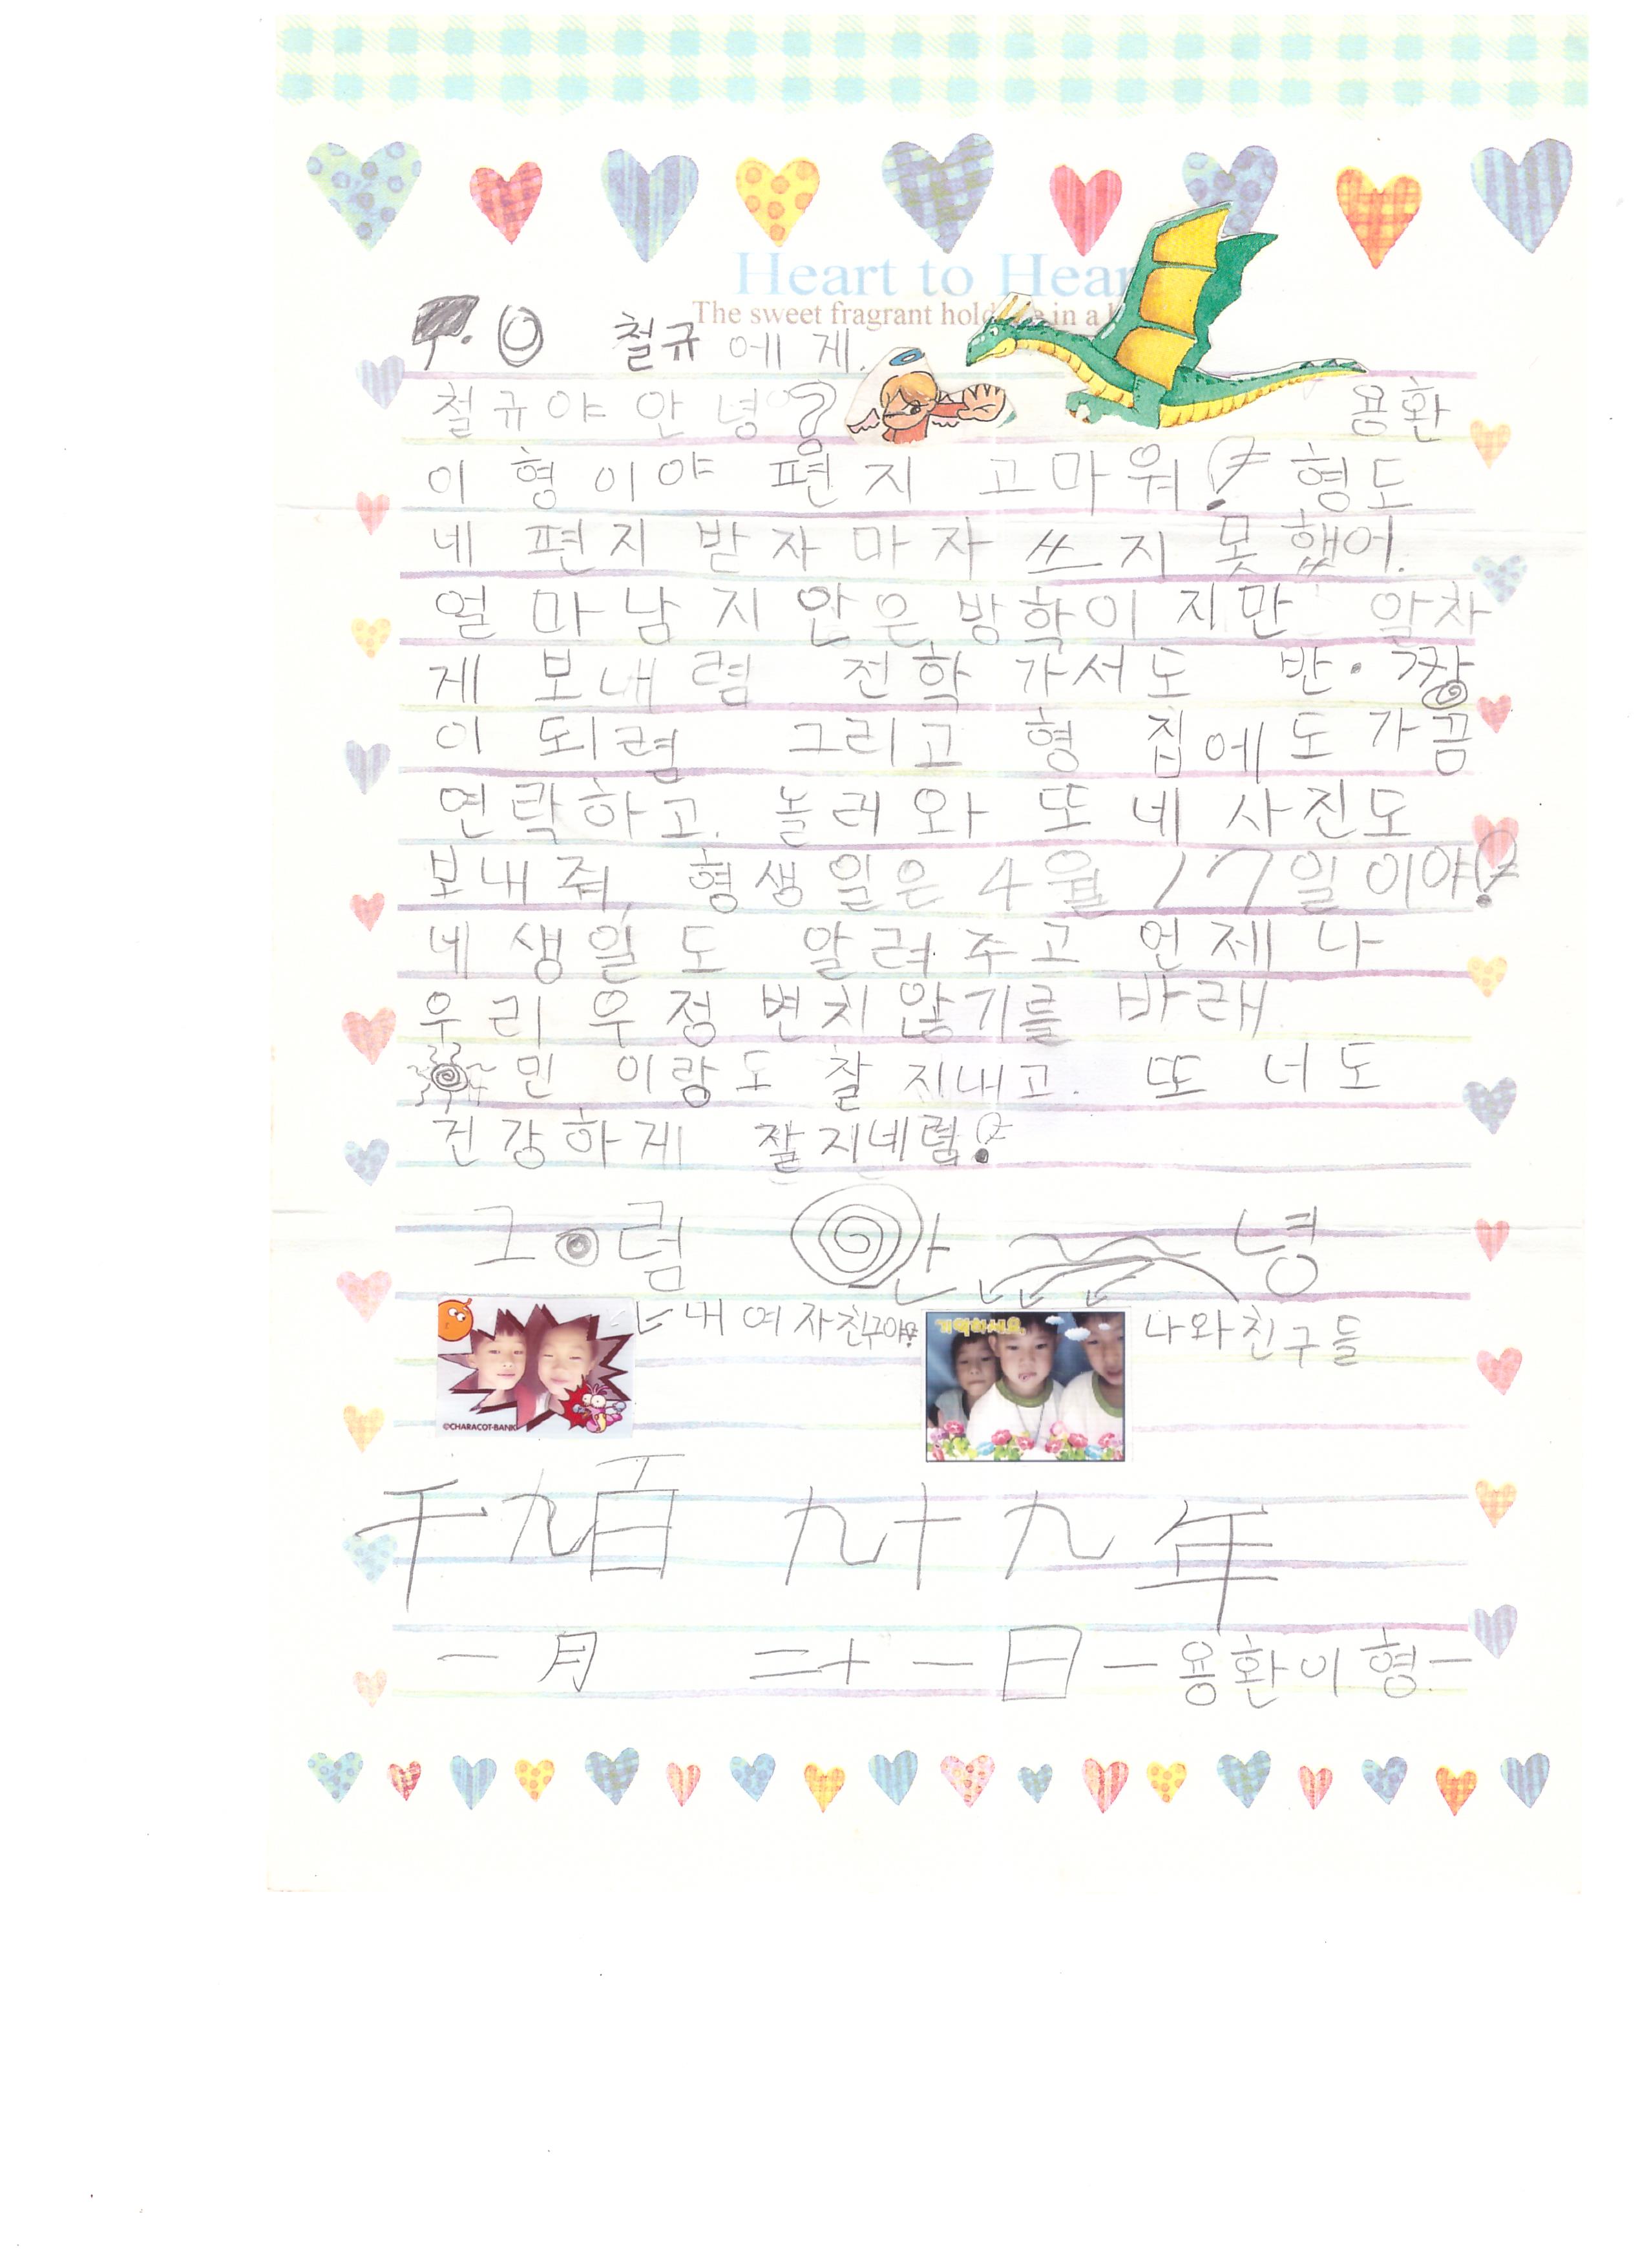 Heart to Hear
The sweet fragrant hold in a
T.O 철규에게.
철규야 안녕? 용환
이 형이야 편지 고마워! 형도
네 편지 받자마자 쓰지 못했어.
얼마남지 안은 방학이지만 알차
게 보내렴 전학 가서도 반·짱
이 되렴 그리고 형 집에도 가끔
연락하고. 놀러와 또 네 사진도
보내줘, 형생일은 4월 17일이야!
네 생일도 알려주고 언제나
우리 우정 변치 않기를 바래
민이랑도 잘 지내고. 또 너도
건강하게 잘지네렴!
그럼 안녕
내 여자친구야! 나와친구들
기억하세요
©CHARACOT-BANK
千九百 九十九年
一月 二十一日 -용환이형-